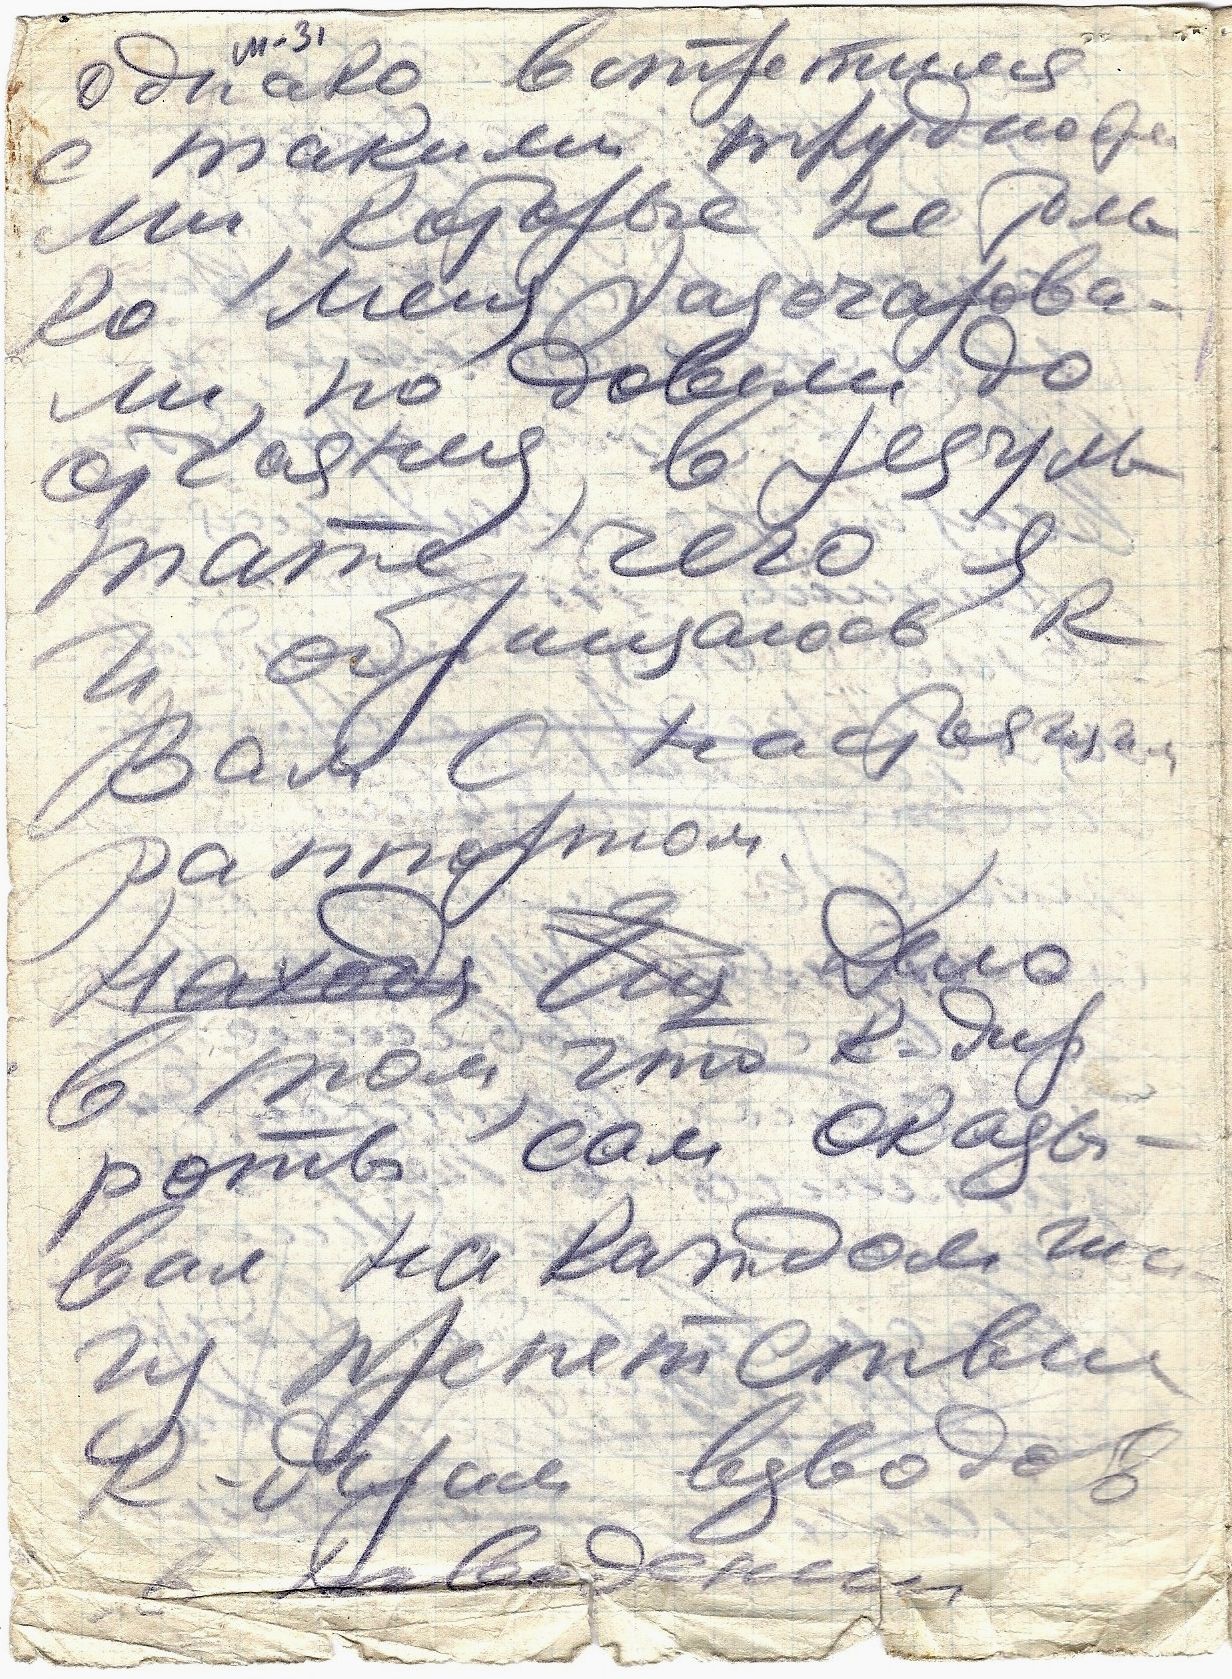 ш-31
однако встретился
с такими трудностя
ми, которые не толь
ко меня разочарова-
ли, но довели до
отчаяния, в резуль
тате, чего я
и обращаюсь к
Вам с настоящим
раппортом.
Находя Дело
в том, что к-дир
роты сам оказы-
вал на каждом ша
гу препетствии
к-дирам взводов
в наведении